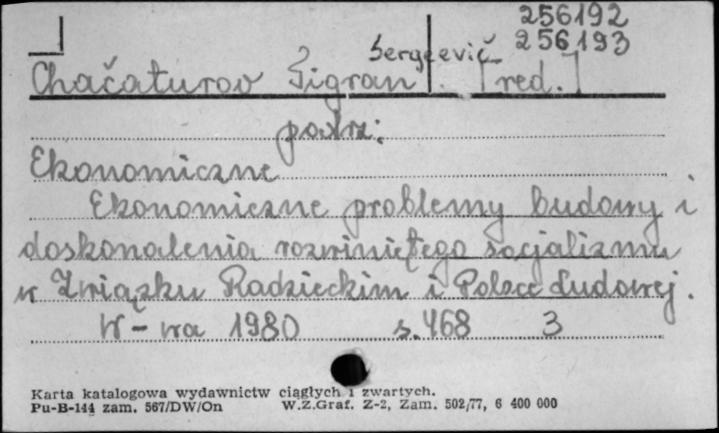 256192
256193
Sergeevič
Chačaturov Tigran. [red.]
patrz:
Ekonomiczne
Ekonomiczne problemy budowy i
doskonalenia rozwiniętego socjalizmu
w Związku Radzieckim i Polsce Ludowej.
W-wa 1980 s. 468 3
Karta katalogowa wydawnictw ciągłych i zwartych.
Pu-B-144 zam. 567/DW/On W.Z.Graf. Z-2, Zam. 502/77, 6 400 000